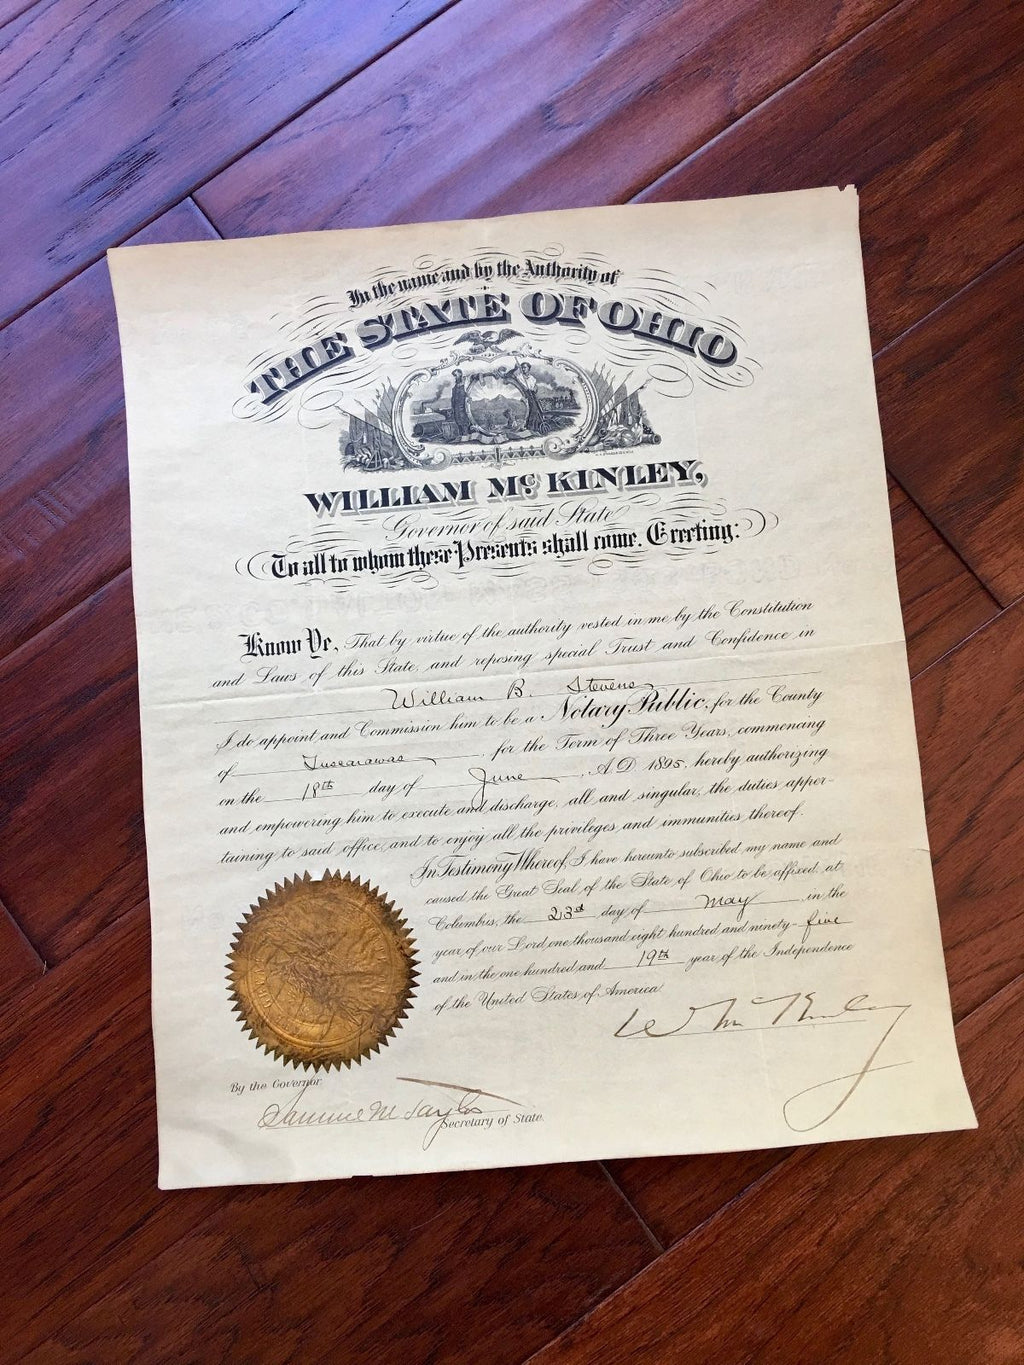 In the name and by the Authority of
THE STATE OF OHIO
WILLIAM McKINLEY,
Governor of said State
To all to whom these Presents shall come, Greeting:
Know Ye, That by virtue of the authority vested in me by the Constitution
and Laws of this State, and reposing special Trust and Confidence in
William B. Stevens
I do appoint and Commission him to be a Notary Public, for the County
of Tuscarawas, for the Term of Three Years, commencing
on the 18th day of June, A.D. 1895, hereby authorizing
and empowering him to execute and discharge, all and singular, the duties apper-
taining to said office, and to enjoy all the privileges and immunities thereof.
In Testimony Whereof, I have hereunto subscribed my name and
caused the Great Seal of the State of Ohio to be affixed, at
Columbus, the 23d day of May in the
year of our Lord, one thousand eight hundred and ninety-five
and in the one hundred and 19th year of the Independence
of the United States of America.
Wm McKinley
By the Governor.
Samuel M Taylor
Secretary of State.